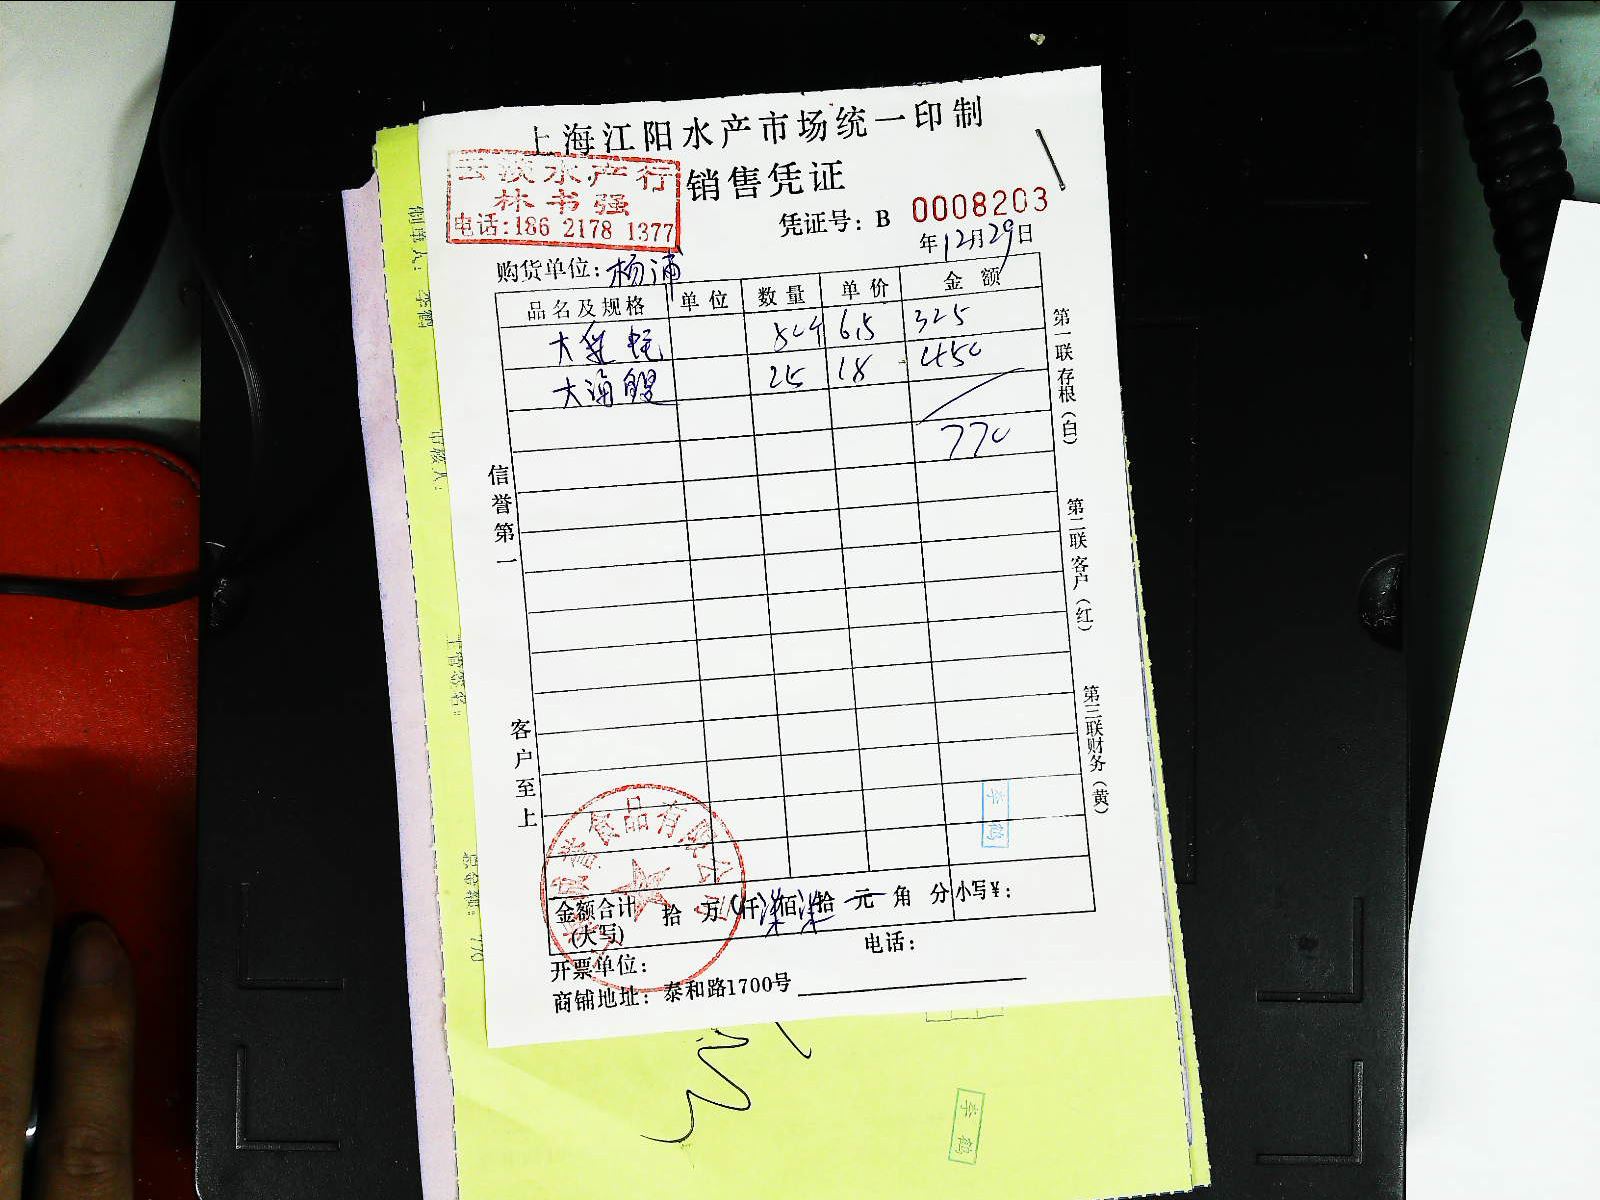 上海江阳水产市场统一印制
销售凭证
云淡水产行
林书强
电话:186 2178 1377
凭证号: B 0008203
年12月29日
购货单位: 杨浦
品名及规格 单位 数量 单价 金额
大 蛏 50斤 6.5 325
大海螺 25 18 450
770
信誉第一
客户至上
第一联存根(白)
第二联客户(红)
第三联财务(黄)
食品有限公司
李鹤
金额合计(大写) 拾 万 仟 柒佰 柒拾 元 角 分 小写¥:
开票单位: 电话:
商铺地址: 泰和路1700号
李鹤